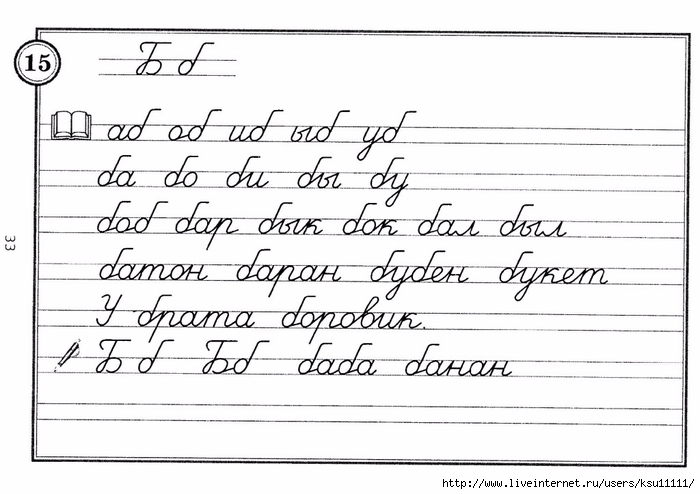 15
Б б
аб об иб ыб уб
ба бо би бы бу
боб бар бык бок бал был
батон баран бубен букет
У брата боровик.
Б б Бб баба банан
33
http://www.liveinternet.ru/users/ksu11111/